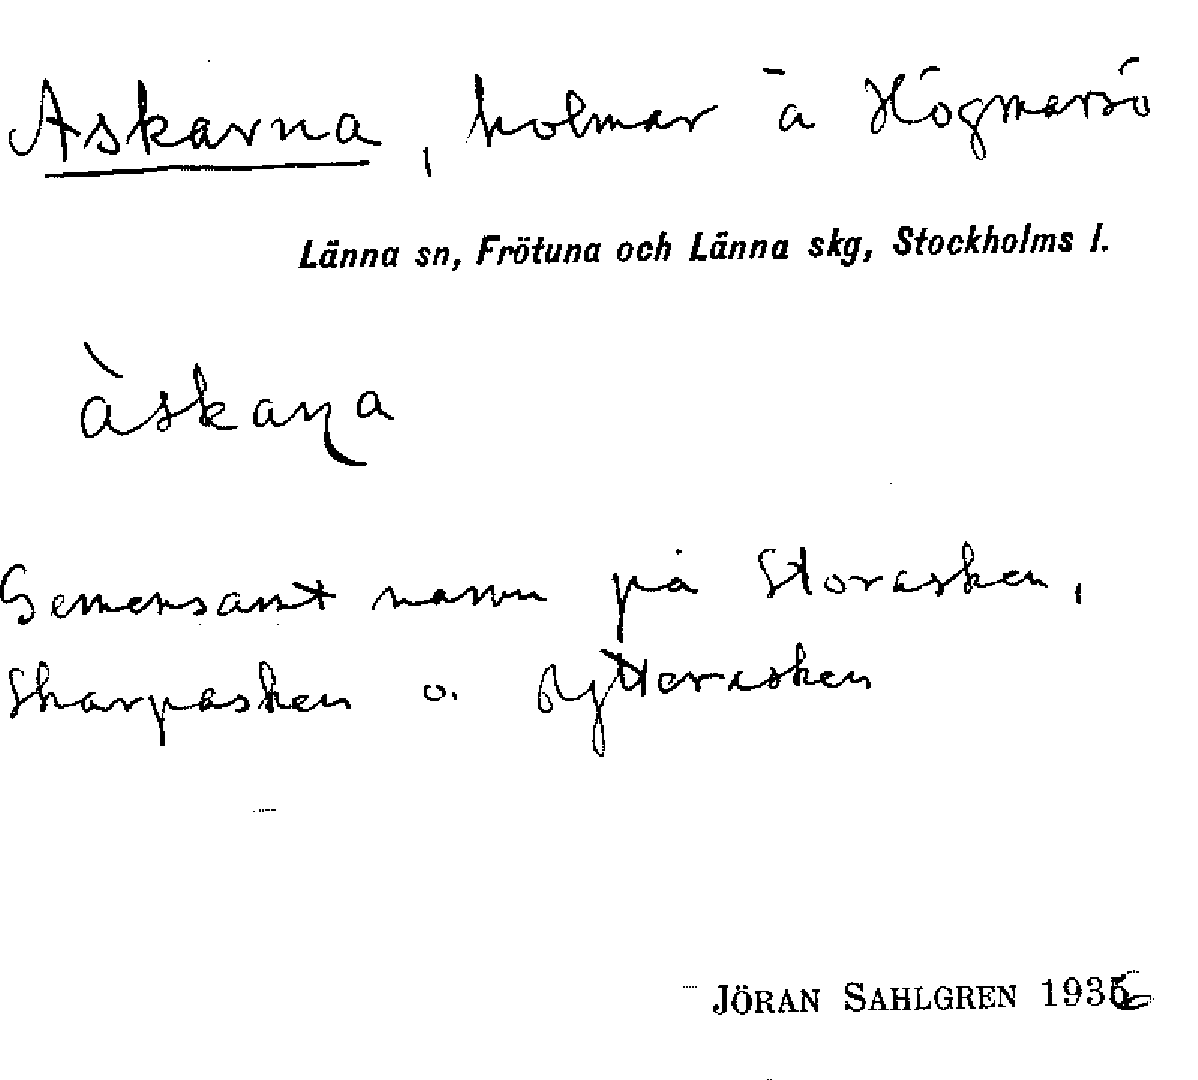 Askarna, holmar å Högmarsö
Länna sn, Frötuna och Länna skg, Stockholms l.
àskaṇa
Gemensamt namn på Storasken,
Skarpasken o. Rytterasken
JÖRAN SAHLGREN 1936